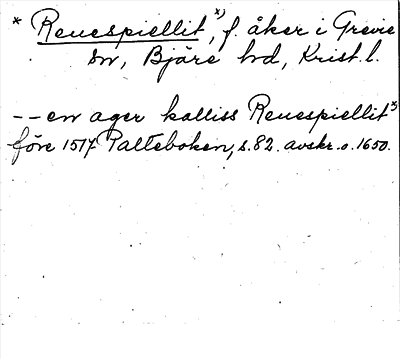 * Reuespiellit*), f. åker i Grevie
sn, Bjäre hd, Krist. l.
-- en ager kalliss Reuespiellit*)
före 1517 Palteboken, s. 82. avskr. o. 1650.